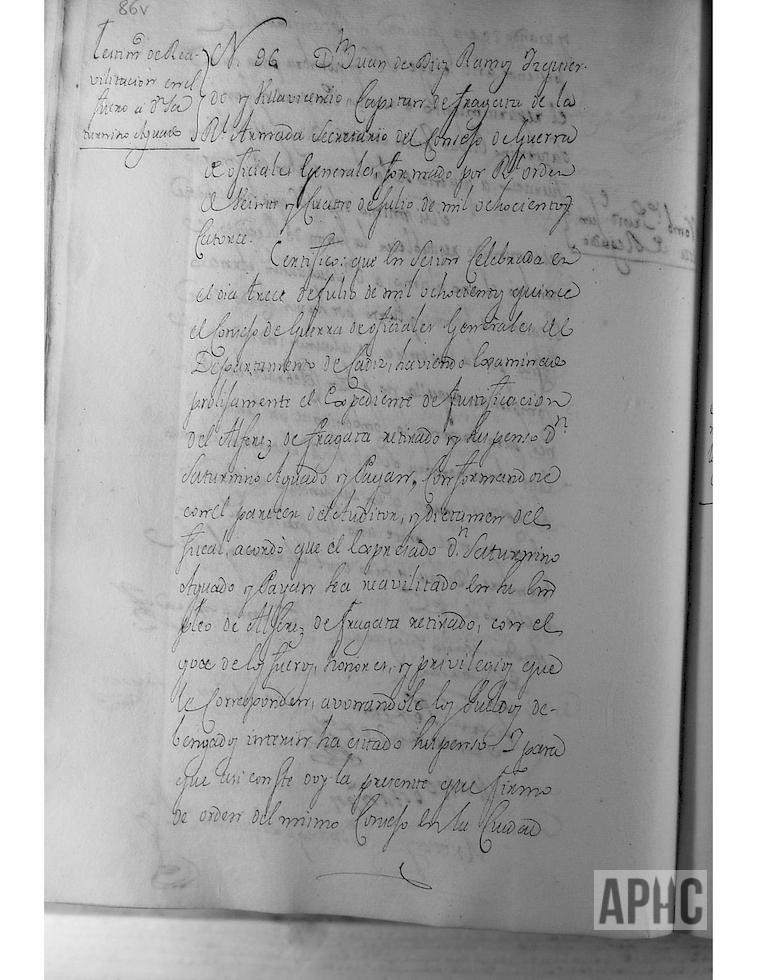 86v
Testimo. de Rea-
vilitacion en el
fuero á Dn. Sa
turnino Aguado
N. 96 Dn. Juan de Dios Ramos Izquier-
do y Villavicencio Capitan de Fragata de la
Rl. Armada Secretario del Consejo de Guerra
de oficiales Generales, formado por Rl. orden
de Veinte y Cuatro de Julio de mil ochocientos
Catorce.
Certifico: que en Sesion Celebrada en
el dia trece de Julio de mil ochocientos quince
el Consejo de Guerra de oficiales Generales del
Departamento de Cadiz, haviendo Examinado
prolijamente el Expediente de Justificacion
del Alferez de fragata retirado y suspenso Dn.
Saturnino Aguado y Payan, Conformandose
con el parecer del Auditor, y Dictamen del
fiscal, acordó que el Expresado Dn. Saturnino
Aguado y Payan sea reavilitado en su Em
pleo de Alferez de fragata retirado, con el
goce de los fueros, honores, y privilegios que
le Corresponden, avonandole los Sueldos de-
bengados interin ha estado suspenso. Y para
que asi conste doy la presente que firmo
de orden del mismo Consejo en la Ciudad
APHC